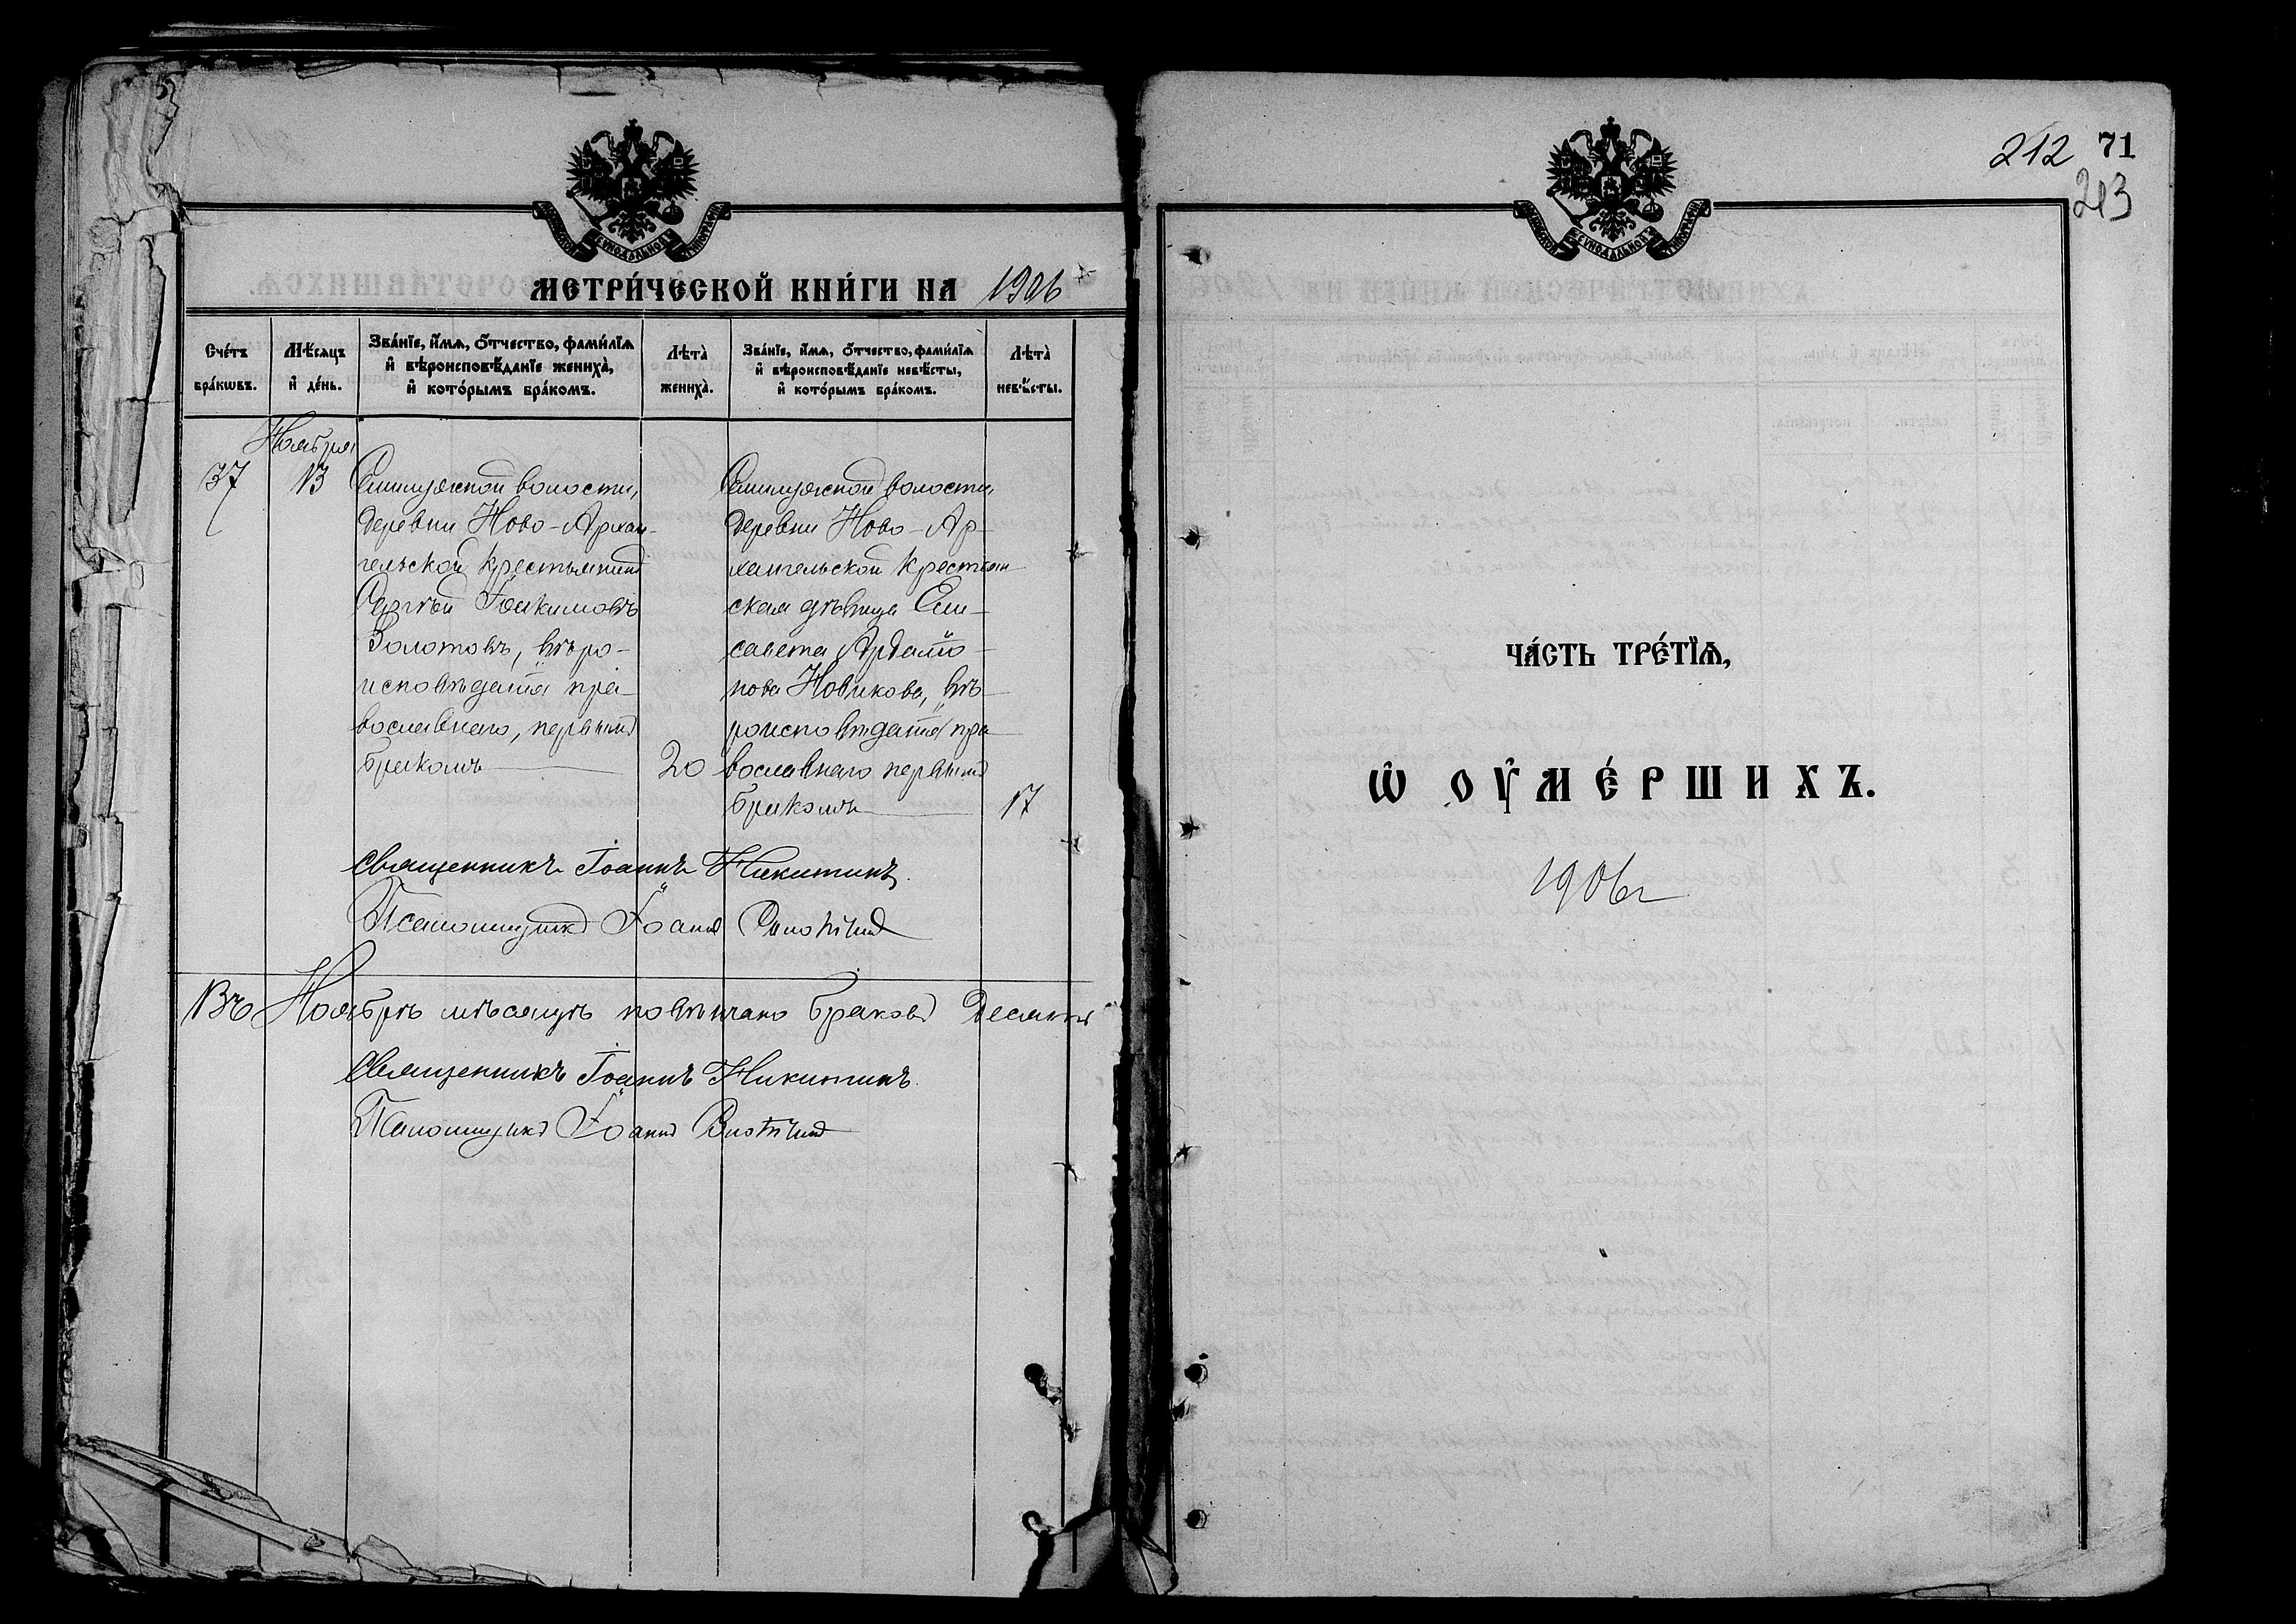 МЕТРИ́ЧЕСКОЙ КНИ́ГИ НА 1906
Сче́тъ бра́кѡвъ.
Мѣ́сяцъ и҆ де́нь.
Зва́нїе, и҆́мѧ, ѻ҆́тчество, фами́лїѧ
и҆ вѣроисповѣ́данїе женихà,
и҆ кото́рымъ бра́комъ.
Лѣтà женихà.
Зва́нїе, и҆́мѧ, ѻ҆́тчество, фами́лїѧ
и҆ вѣроисповѣ́данїе невѣ́сты,
и҆ кото́рымъ бра́комъ.
Лѣтà невѣ́сты.
Ноября
37
13
волости,
деревни Ново-Архан-
гельской крестьянинъ
Сергѣй Іоакимовъ
Золотовъ, вѣро-
исповѣданія пра-
вославнаго, первымъ
бракомъ
20
волости,
деревни Ново-Ар-
хангельской крестьян-
ская дѣвица Ели-
савета
нова Новикова, вѣ-
роисповѣданія пра-
вославнаго первымъ
бракомъ
17
Священникъ Іоаннъ Никитинъ.
Псаломщикъ Іоаннъ
Въ Ноябрѣ мѣсяцѣ повѣнчано браковъ десять
Священникъ Іоаннъ Никитинъ.
Псаломщикъ Іоаннъ
212 71
213
ЧА́СТЬ ТРЕ́ТЇѦ,
Ѡ҆ ОУ҆МЕ́РШИХЪ.
1906 г